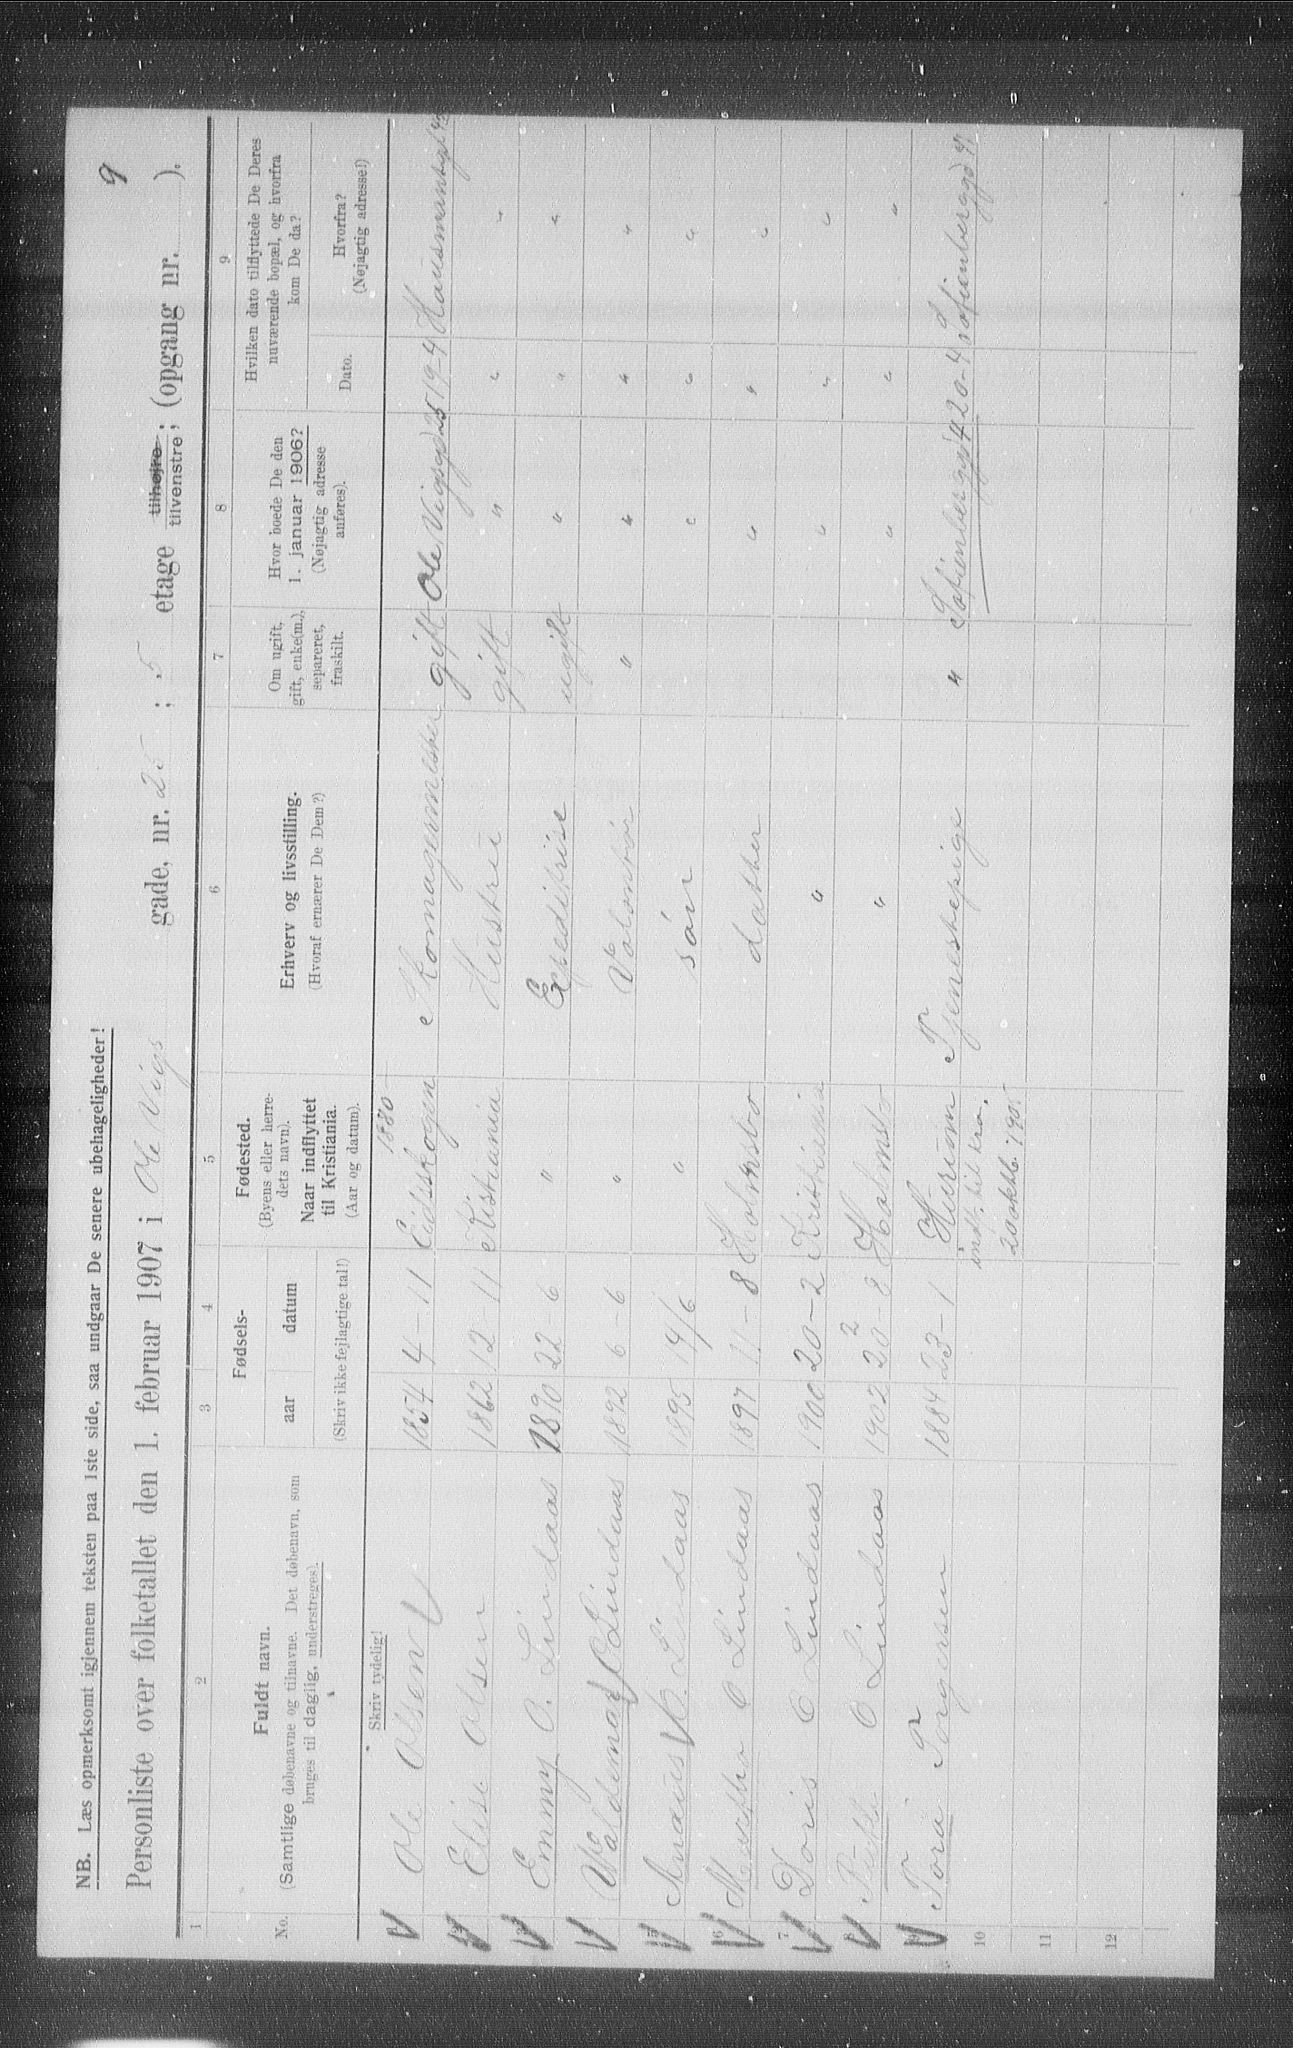 NB. Læs opmerksomt igjennem teksten paa 1ste side, saa undgaar De senere ubehageligheder!
9
Personliste over folketallet den 1. februar 1907 i Ole Vigs gade, nr. 25 ; 5 etage tilhøjre tilvenstre; (opgang nr. ).
1 2 3 4 5 6 7 8 9
No.
Fuldt navn.
(Samtlige døbenavne og tilnavne. Det døbenavn, som
bruges til daglig, understreges).
Fødsels-
aar datum
(Skriv ikke fejlagtige tal!)
Fødested.
(Byens eller herre-
dets navn).
Naar indflyttet
til Kristiania.
(Aar og datum).
Erhverv og livsstilling.
(Hvoraf ernærer De Dem?)
Om ugift,
gift, enke(m.),
separeret,
fraskilt.
Hvor boede De den
1. januar 1906?
(Nøjagtig adresse
anføres).
Hvilken dato tilflyttede De Deres
nuværende bopæl, og hvorfra
kom De da?
Dato.
Hvorfra?
(Nøjagtig adresse!)
Skriv tydelig!
1880
1 Ole Olsen 1854 4-11 Eidsskogen Skomagermester gift Ole Vigsgd 25 19-4
2 Elise Olsen 1862 12-11 Kristiania Hustru gift " " "
3 Emmy O. Lindaas 1890 22-6 " Expeditrise ugift " " "
4 Valdemar O Lindaas 1892 6-6 " Volontør " " " "
5 O. Lindaas 1895 14/6 " søn " " "
6 O Lindaas 1897 11-8 Holmsbo datter " " "
7 Doris O Lindaas 1900 20-2 Kristiania " " " "
8 O Lindaas 1902 20-2 Holmsbo " " " "
9 Tora Torgersen 1884 23-1 Hurum Tjenestepige " Sofienberggd 4 20-4 Sofienberggd 4
indf. til Kra.
20 oktb. 1905
10
11
12